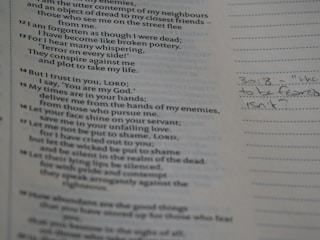 my enemies,
I am the utter contempt of my neighbours
and an object of dread to my closest friends –
those who see me on the street flee
from me.
12 I am forgotten as though I were dead;
I have become like broken pottery.
13 For I hear many whispering,
'Terror on every side!'
They conspire against me
and plot to take my life.
14 But I trust in you, LORD;
I say, 'You are my God.'
15 My times are in your hands;
deliver me from the hands of my enemies,
from those who pursue me.
16 Let your face shine on your servant;
save me in your unfailing love.
17 Let me not be put to shame, LORD,
for I have cried out to you;
but let the wicked be put to shame
and be silent in the realm of the dead.
18 Let their lying lips be silenced,
for with pride and contempt
they speak arrogantly against the
righteous.
19 How abundant are the good things
that you have stored up for those who fear
you,
that you bestow in the sight of all,
to be
isn't"